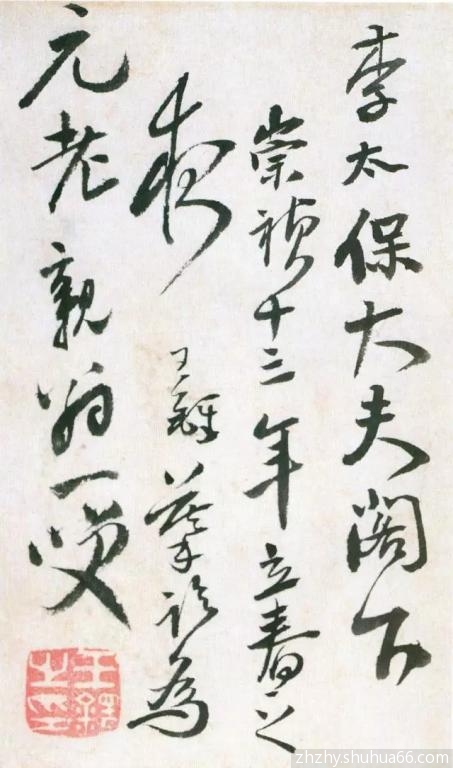 李太保大夫閣下
崇禎十三年立春之
夜 王鐸 摹 為
元老親翁一
王鐸之印
zhzhyshuhua66.com